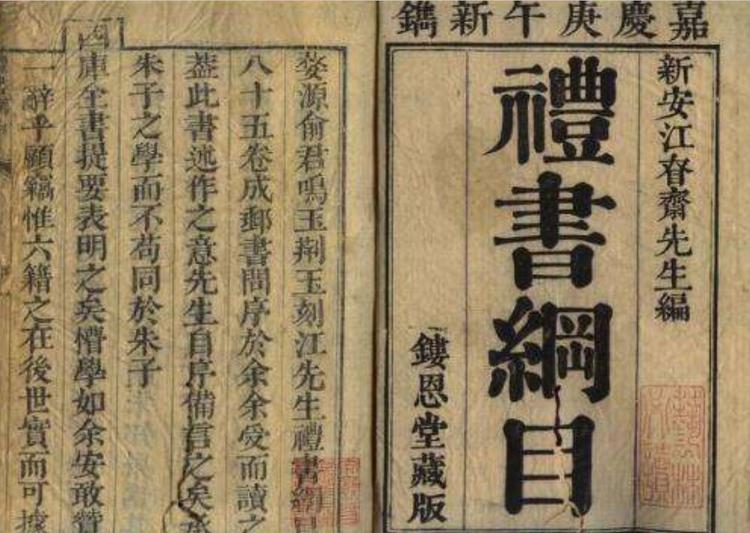 嘉慶庚午新鐫
新安江昚齋先生編
禮書綱目
鏤恩堂藏版
婺源俞君鳴玉荆玉刻江先生禮書綱目
八十五卷成郵書問序於余余受而讀之
葢此書述作之意先生自序備言之矣承
朱子之學而不苟同於朱子
四庫全書提要表明之矣懵學如余安敢贊
一辭乎顧竊惟六籍之在後世實而可據